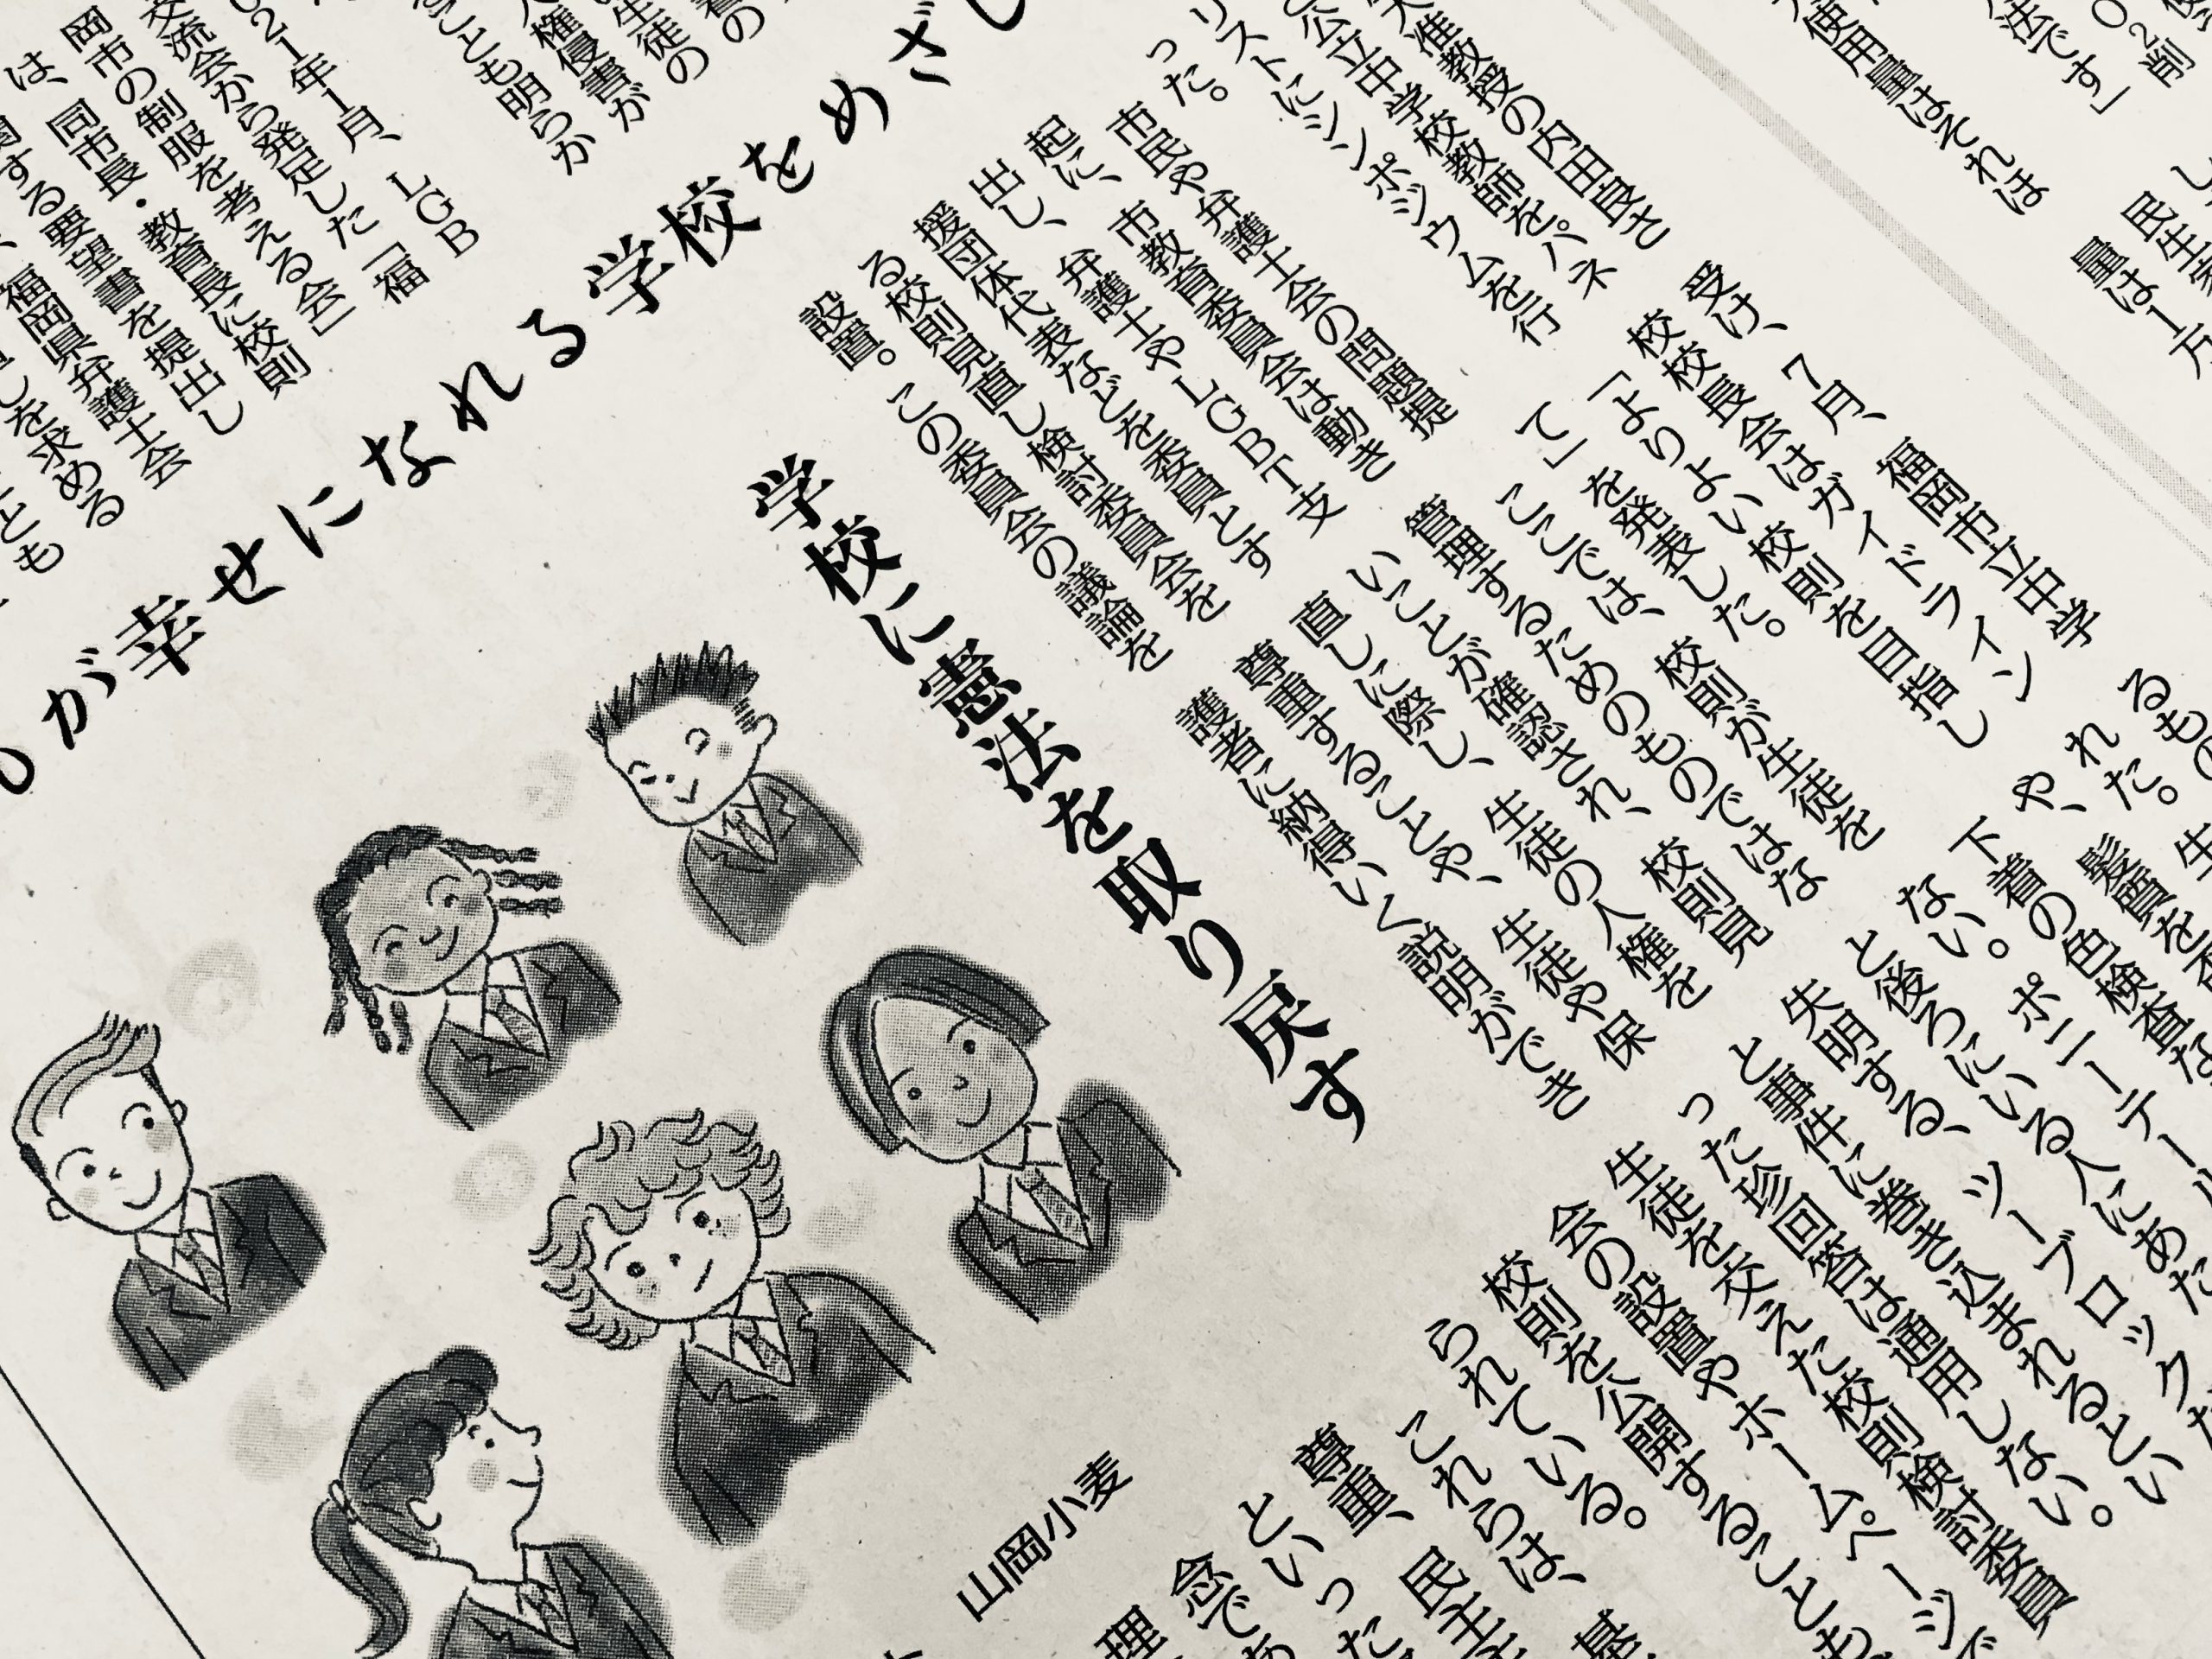 法です」
使用量はそれは
量は1万
准教授の内田良さ
公立中学校教師をパネ
リストにシンポジウムを行
った。
市民や弁護士会の問題提
起に、市教育委員会は動き
出し、弁護士やLGBT支
援団体代表などを委員とす
る校則見直し検討委員会を
設置。この委員会の議論を
受け、7月、福岡市立中学
校校長会はガイドライン
「よりよい校則を目指し
て」を発表した。
ここでは、校則が生徒を
管理するためのものではな
いことが確認され、校則見
直しに際し、生徒の人権を
尊重することや、生徒や保
護者に納得いく説明ができ
るもの
れた。
や、髪質を
下着の色検査な
ない。ポニーテール
と後ろにいる人にあた
失明する、ツーブロックだ
と事件に巻き込まれるとい
った珍回答は通用しない。
生徒を交えた校則検討委員
会の設置やホームページで
校則を公開することも
られている。
これらは、基
尊重、民主
といった
念であ
理
学校に憲法を取り戻す
が幸せになれる学校をめざし
生徒の
人権侵害が
ことも明らか
021年1月、LGB
交流会から発足した「福
岡市の制服を考える会」
は、同市長・教育長に校則
関する要望書を提出し
福岡県弁護士会
しを求める
とも
山岡小麦